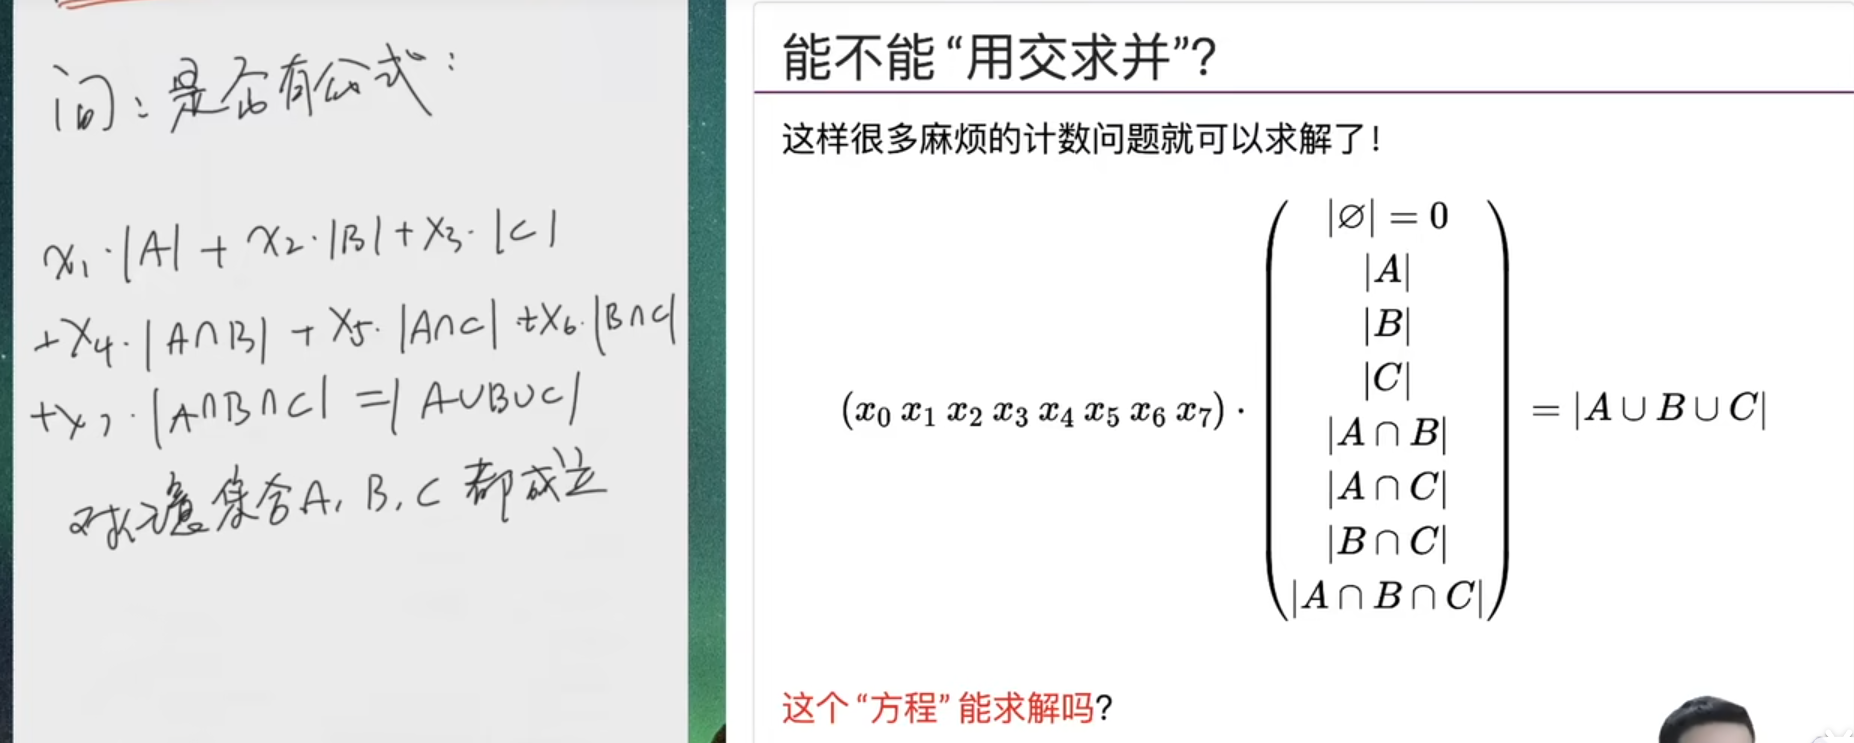 问：是否有公式：
x₁·|A| + x₂·|B| + x₃·|C|
+x₄·|A∩B| + x₅·|A∩C| +x₆·|B∩C|
+x₇·|A∩B∩C| = |A∪B∪C|
对任意集合A, B, C 都成立
能不能“用交求并”？
这样很多麻烦的计数问题就可以求解了！
|∅| = 0
|A|
|B|
|C|
(x₀ x₁ x₂ x₃ x₄ x₅ x₆ x₇) · = |A ∪ B ∪ C|
|A ∩ B|
|A ∩ C|
|B ∩ C|
|A ∩ B ∩ C|
这个“方程”能求解吗？